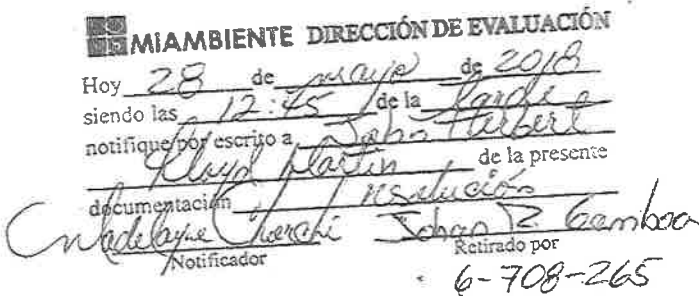 MIAMBIENTE DIRECCIÓN DE EVALUACIÓN
Hoy 28 de mayo de 2018
siendo las 12:45 de la tarde
notifique por escrito a John Herbert
Lloyd Martin de la presente
documentación resolución
Johan R Gamboa
Notificador Retirado por
6-708-265